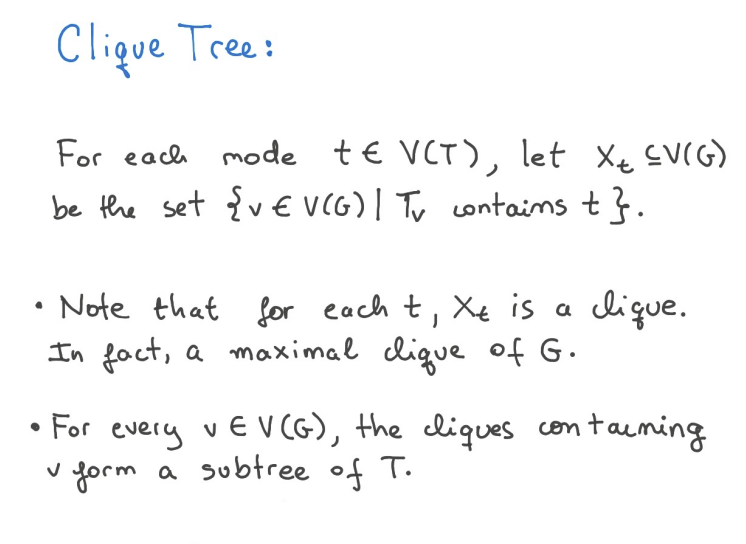 Clique Tree:
For each mode t ∈ V(T), let X_t ⊆ V(G)
be the set {v ∈ V(G) | T_v contaims t}.
• Note that for each t, X_t is a clique.
In fact, a maximal clique of G.
• For every v ∈ V(G), the cliques contauning
v form a subtree of T.